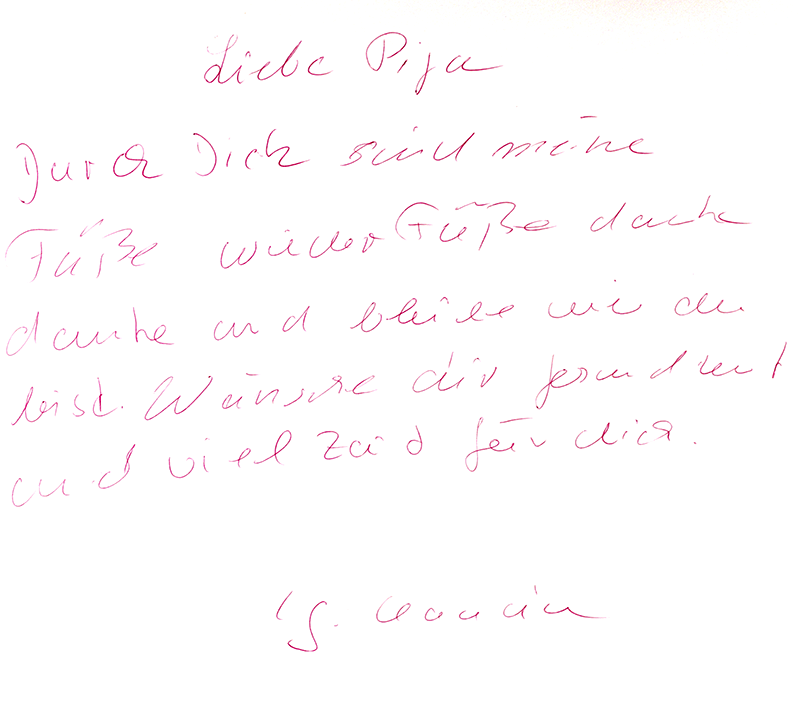 Liebe Pija
Durch Dich sind meine
Füße wieder Füße danke
danke und bleibe wie du
bist. Wünsche dir
und viel Zeid für dich.